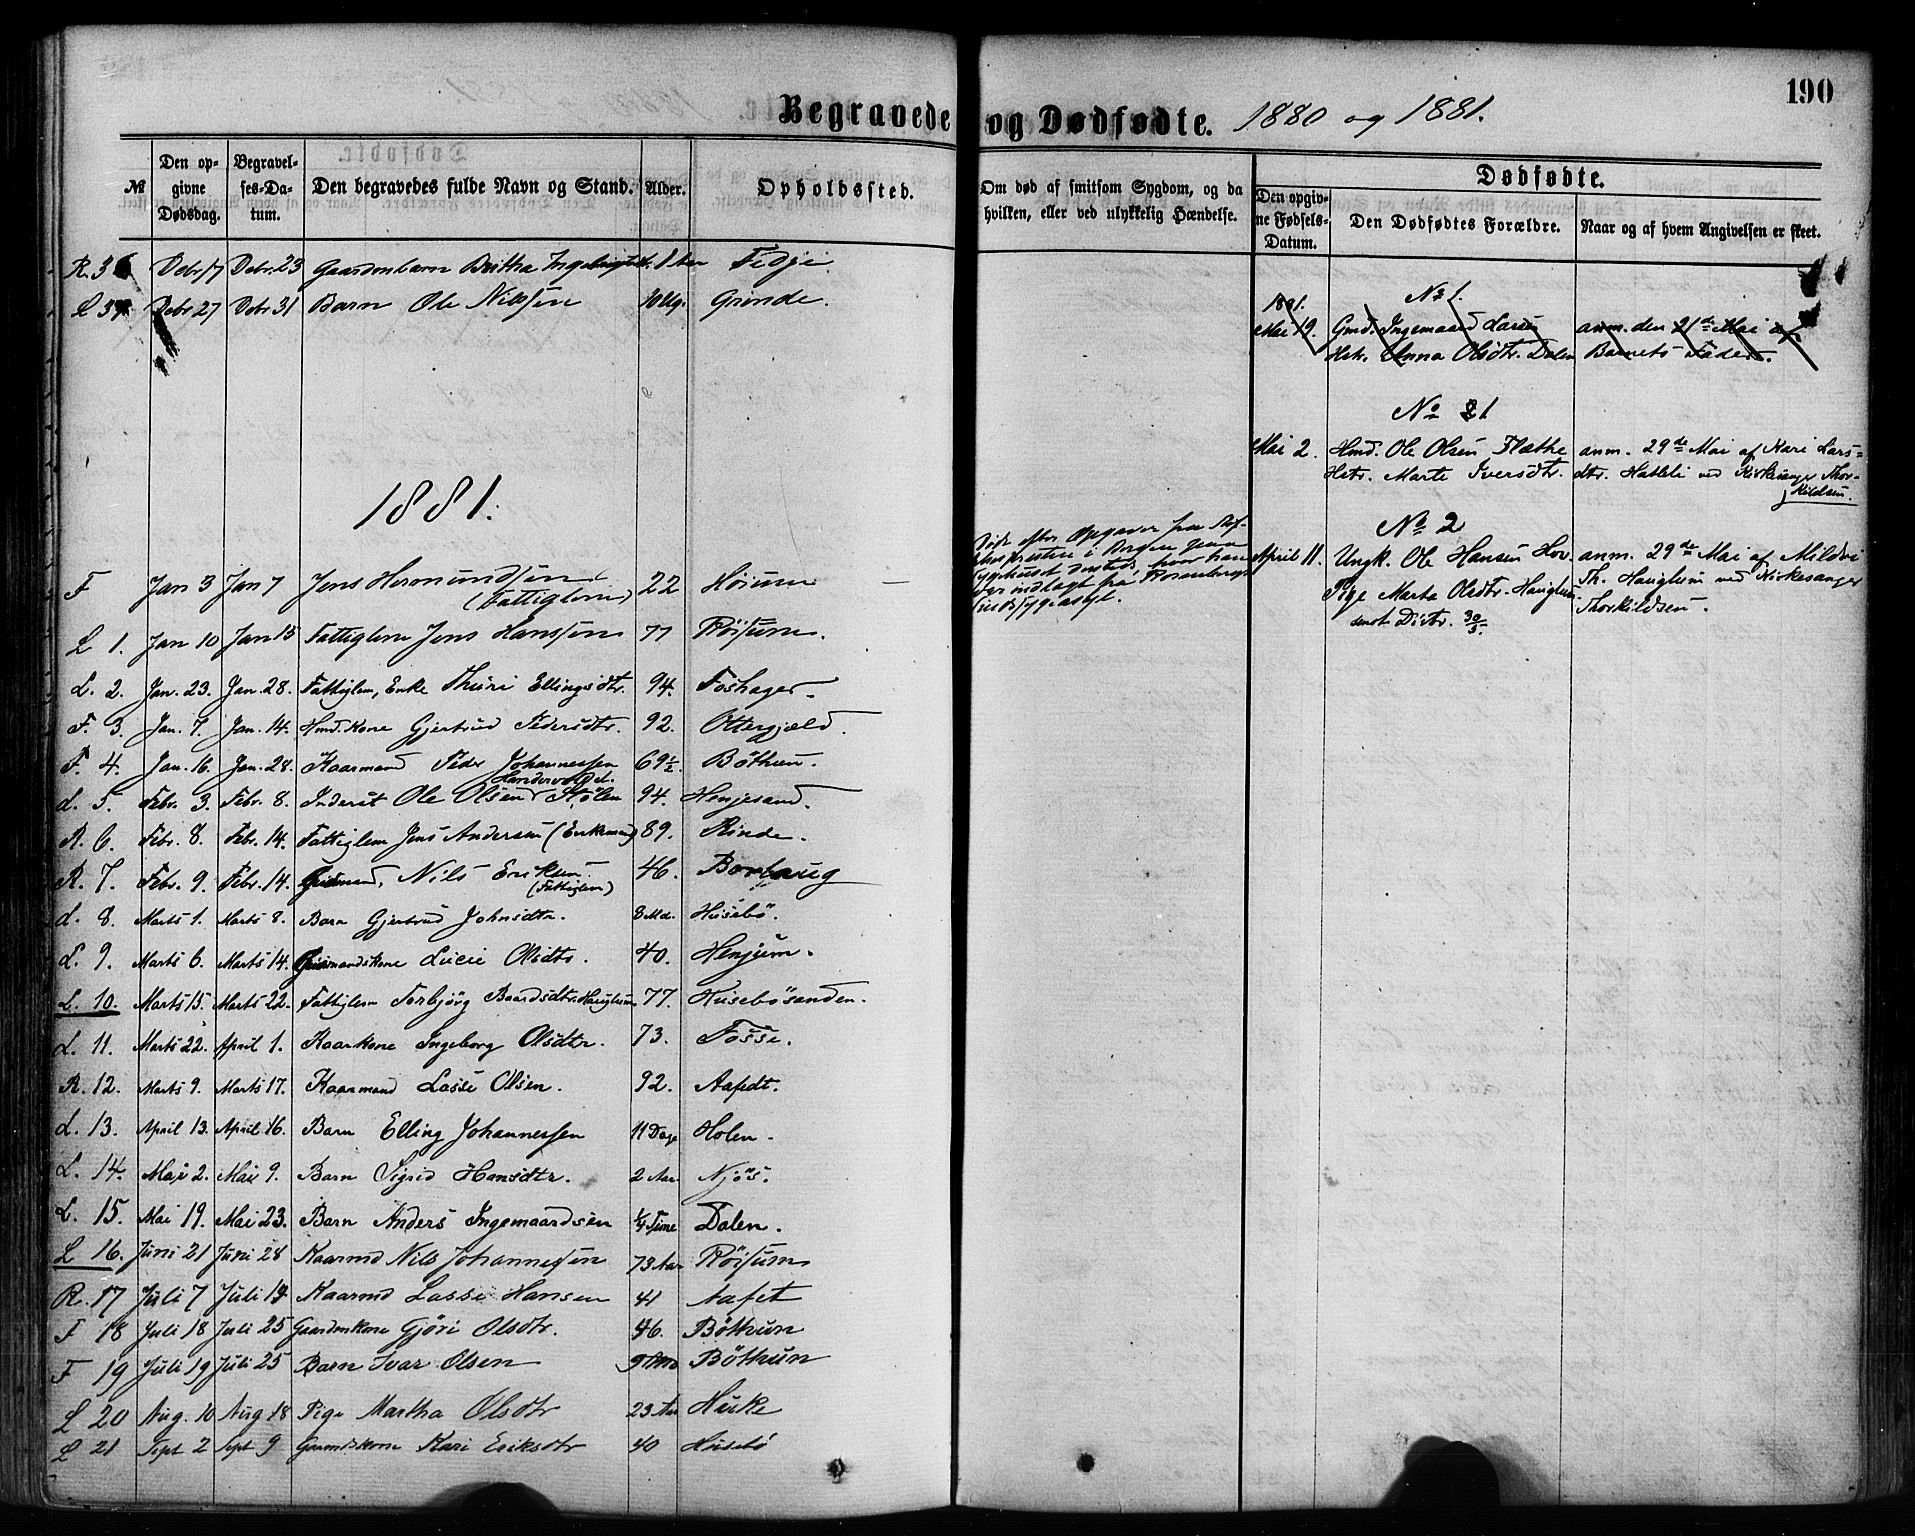 190
Begravede og Dødfødte. 1880 og 1881.
№ Den opgivne Dødsdag. Begravelses-Datum. Den begravedes fulde Navn og Stand. Alder. Opholdssted. Om død af smitsom Sygdom, og da hvilken, eller ved ulykkelig Hændelse.
Dødfødte.
Den opgivne Fødsels-Datum. Den Dødfødtes Forældre. Naar og af hvem Angivelsen er skeet.
R. 36 Debr 17 Debr. 23 Gaardmbarn Britha 1 Aar Fedje.
L 37 Debr 27 Debr 31 Barn Ole Nilssen 10 Ug. Grinde.
1881.
F Jan 3 Jan 7 Jens Hermundsen (Fattiglem) 22 Hörum
L 1. Jan 10 Jan 15 Fattiglem Jens Hanssen 77 Röisum.
L. 2. Jan. 23. Jan. 28. Fattiglem, Enke Thuri Ellingsdtr. 94. Foshager.
F. 3. Jan. 7. Jan. 14. Hmd. Kone Gjertrud Pedersdtr. 92. Ottergjæld.
F. 4. Jan. 16. Jan. 28. Kaarmand Peder Johannessen 69½. Böthun.
L. 5. Febr. 3. Febr. 8. Inderst Ole Olsen Stölen 94. Henjesand.
R. 6. Febr. 8. Febr. 14. Fattiglem Jens Andersen (Enkemand) 89. Rinde.
R. 7. Febr. 9. Febr. 14. Nils Eriksen. (Fattiglem) 46. Borlaug
L. 8. Marts 1. Marts 8. Barn Gjertrud Johnsdtr. 8 Md. Husebö.
L. 9. Marts 6. Marts 14. Lucie Olsdtr. 40. Henjum.
L. 10. Marts 15. Marts 22. Fattiglem Torbjörg Baardsdtr. Hauglum 77. Husebösanden.
L. 11. Marts 22. April 1. Kaarkone Ingeborg Olsdtr. 73. Fosse.
R. 12. Marts 9. Marts 17. Kaarmand Lasse Olsen. 92. Aafedt.
L. 13. April 13. April 16. Barn Elling Johannessen 11 Dage Holen.
L. 14. Mai 2. Mai 9. Barn Sigrid Hansdtr. 2 Aar Njös.
L. 15. Mai 19. Mai 23. Barn Anders Ingemaardsen ¼ Time Dalen.
L 16. Juni 21 Juni 28 Kaarmd Nils Johannessen 73 Aar Röisum
R. 17 Juli 7 Juli 14 Kaarmd Lasse Hansen 41 Aafet
F 18 Juli 18 Juli 25 Gaardmkone Gjöri Olsdtr. 46. Böthun
F 19 Juli 19 Juli 25 Barn Ivar Olsen Böthun
L 20 Aug. 10 Aug 18 Pige Martha Olsdtr 23 Aar Huke
L 21 Sept 2 Sept 9 Kari Eriksdtr 40 Husebö
Död efter Opgave fra
i Bergen paa
Sygehuset sammesteds, hvor han
var indlagt fra Rosenbergs
Sindssygeasyl.
1881. № 1.
Mai 19. Gmd. Ingemaard Larsen anm. den 21de Mai af
Hstr. Anna Olsdtr. Dalen Barnets Fader.
№ 1
Mai 2. Hmd. Ole Olsen Flæthe anm. 29de Mai af Kari Lars-
Hstr. Marte Iversdtr. dtr. Hatleli ved Kirkesanger Thor-
kildsen.
№ 2
April 11. Ungk. Ole Hansen Hov. anm. 29de Mai af Mildri
Pige Marta Olsdtr. Hauglum. Th. Hauglum ved Kirkesanger
30/5. Thorkildsen.